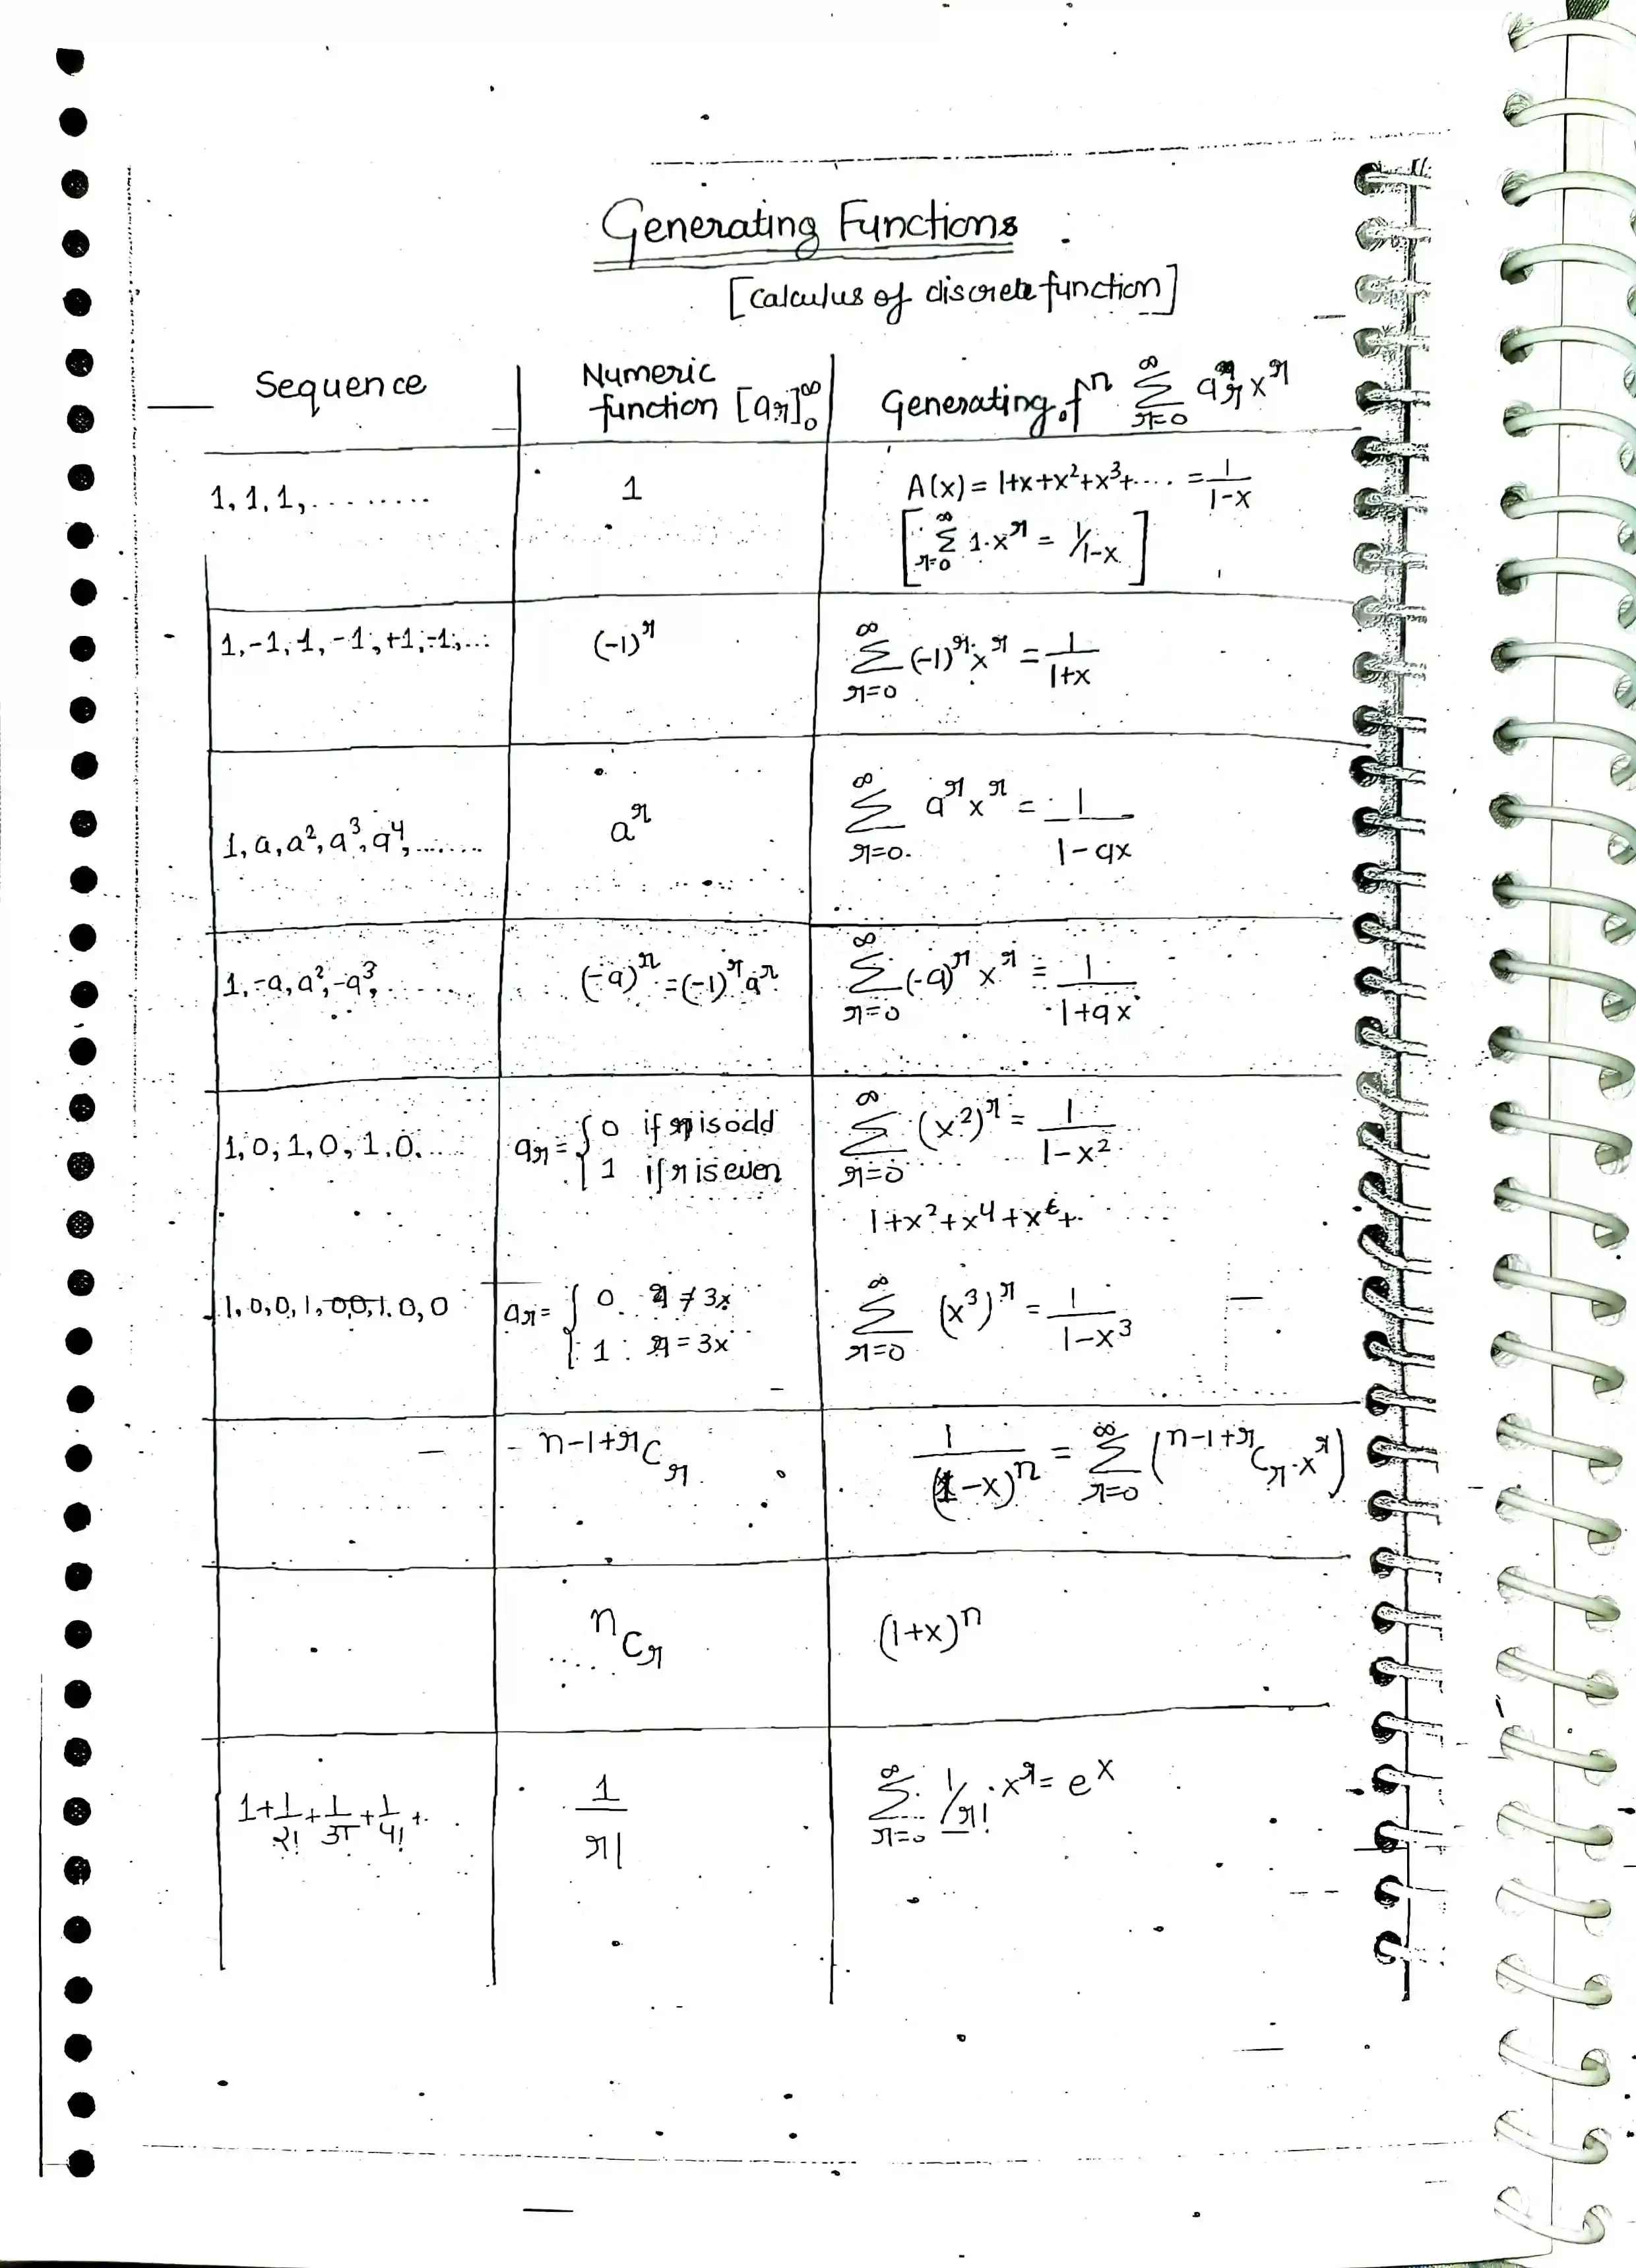 Generating Functions
[calculus of discrete function]
Sequence | Numeric function [aᵣ]₀^∞ | Generating fⁿ ∞Σr=0 aᵣxʳ
1, 1, 1, ......... | 1 | A(x) = 1+x+x²+x³+.... = 1/(1-x)
[∞Σr=0 1·xʳ = 1/1-x]
1, -1, 1, -1, +1, -1, ... | (-1)ʳ | ∞Σr=0 (-1)ʳ·xʳ = 1/(1+x)
1, a, a², a³, a⁴, ........ | aʳ | ∞Σr=0 aʳxʳ = 1/(1-ax)
1, -a, a², -a³, ....... | (-a)ʳ = (-1)ʳaʳ | ∞Σr=0 (-a)ʳxʳ = 1/(1+ax)
1, 0, 1, 0, 1, 0, .... | aᵣ = { 0 if r is odd | ∞Σr=0 (x²)ʳ = 1/(1-x²)
1 if r is even
1+x²+x⁴+x⁶+.....
1, 0, 0, 1, 0, 0, 1, 0, 0 | aᵣ = { 0 r ≠ 3x | ∞Σr=0 (x³)ʳ = 1/(1-x³)
1 r = 3x
- | n-1+rCᵣ | 1/(1-x)ⁿ = ∞Σr=0 (n-1+rCᵣ·xʳ)
ⁿCᵣ | (1+x)ⁿ
1+1/2!+1/3!+1/4!+.. | 1/r! | ∞Σr=0 1/r!·xʳ = eˣ